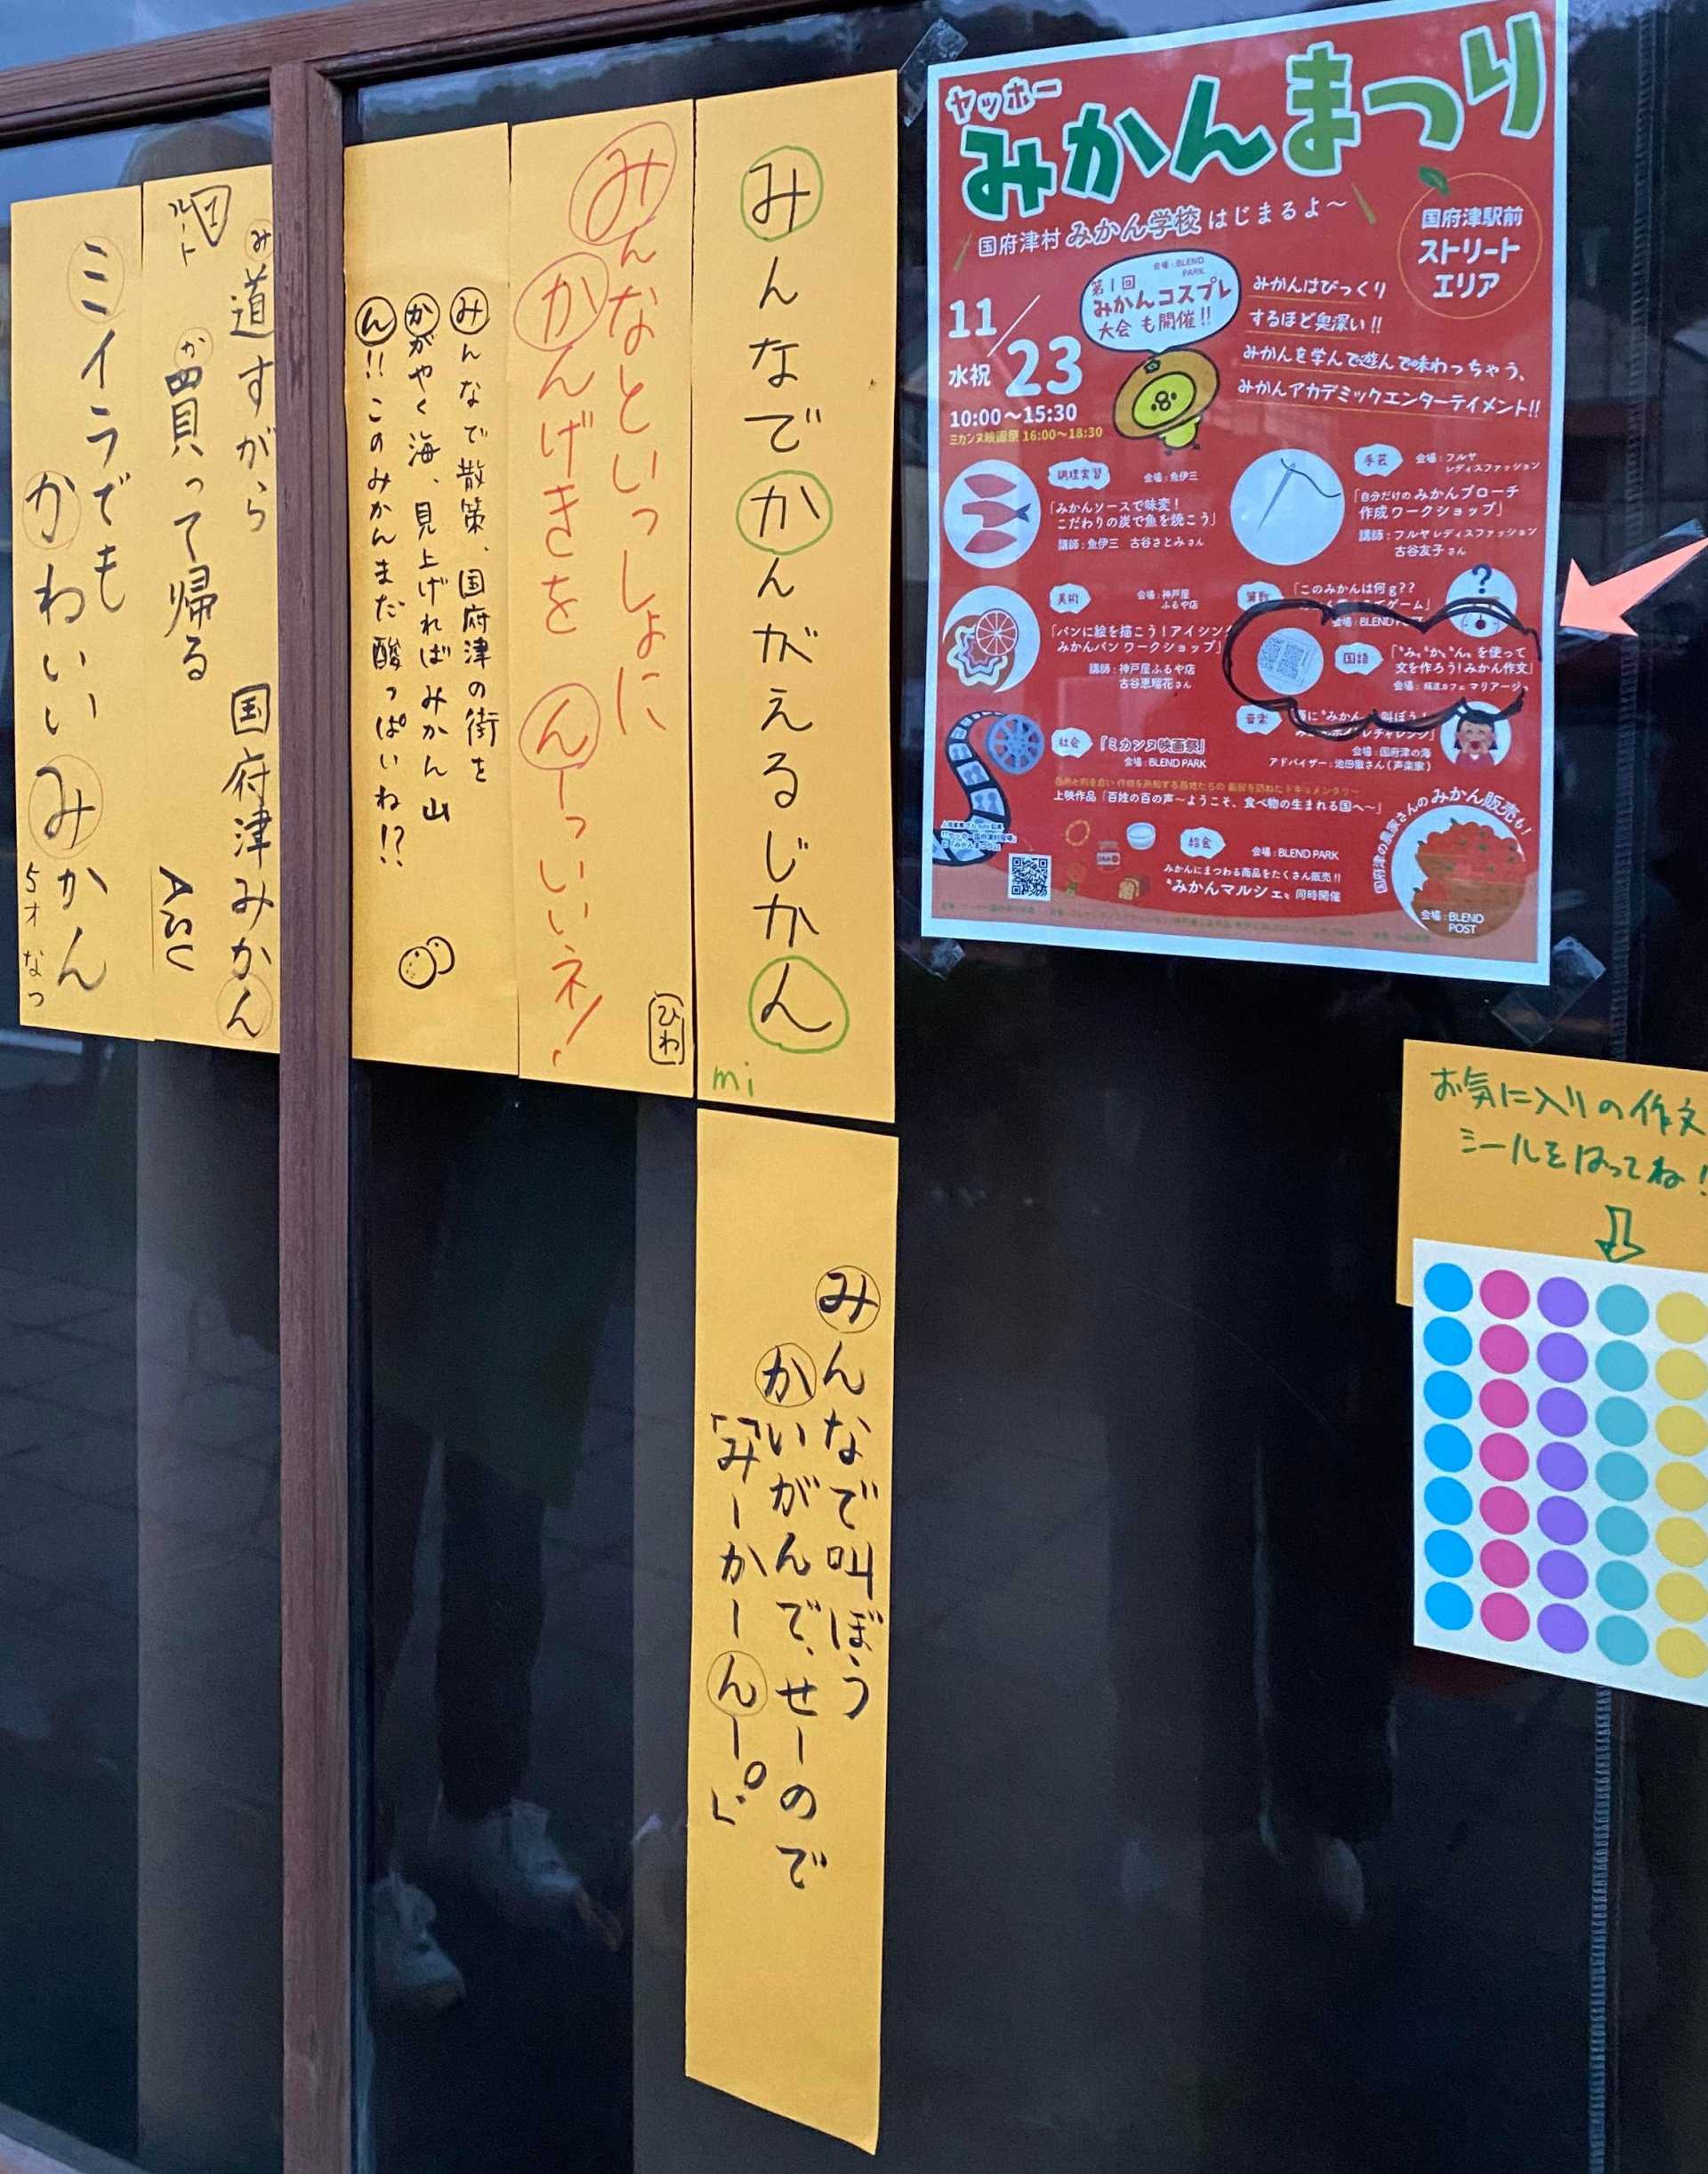 ヤッホー
みかんまつり
国府津村 みかん学校 はじまるよ〜
国府津駅前
ストリート
エリア
会場:BLEND PARK
第1回
みかんコスプレ
大会 も開催!!
11/23
水祝
10:00〜15:30
ミカンヌ映画祭 16:00〜18:30
みかんはびっくり
するほど奥深い!!
みかんを学んで遊んで味わっちゃう、
みかんアカデミックエンターテイメント!!
調理実習
会場:魚伊三
「みかんソースで味変!
こだわりの炭で魚を焼こう」
講師:魚伊三 古谷さとみさん
手芸
会場:フルヤ
レディスファッション
「自分だけの みかんブローチ
作成 ワークショップ」
講師:フルヤレディスファッション
古谷友子さん
美術
会場:神戸屋
ふるや店
「パンに絵を描こう!アイシング
みかんパン ワークショップ」
講師:神戸屋ふるや店
古谷恵瑠花さん
算数
「このみかんは何g??
ゲーム」
会場:BLEND POST
国語
「"み" "か" "ん" を使って
文を作ろう!みかん作文」
会場: カフェ マリアージュ
音楽
叫ぼう!
チャレンジ」
会場:国府津の海
アドバイザー:池田徹さん(声楽家)
社会
「ミカンヌ映画祭」
会場:BLEND PARK
上映作品「百姓の百の声〜ようこそ、食べ物の生まれる国へ〜」
給食
会場:BLEND PARK
みかんにまつわる商品をたくさん販売!!
"みかんマルシェ" 同時開催
国府津の農家さんの みかん販売も!
会場:BLEND
POST
みんなでかんがえるじかん
mi
みんなといっしょに
かんげきを んーっいいネ!
ひわ
みんなで散策、国府津の街を
かがやく海、見上げればみかん山
ん!!このみかんまだ酸っぱいね!?
み
道すがら 国府津みかん
か
買って帰る
ルート
1
ASU
ミイラでも
かわいいみかん
5才 なつ
みんなで叫ぼう
かいがんで、せーので
「みーかーんー。」
お気に入りの作文
シールをはってね!